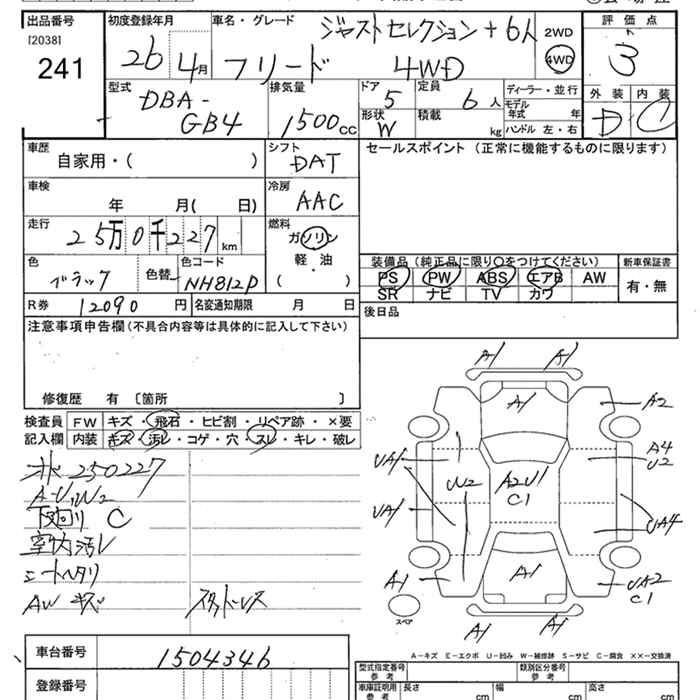 出品番号
[2038]
241
初度登録年月
26
4月
車名・グレード
ジャストセレクション+6人
フリード 4WD
2WD
4WD
評価点
3
外装 内装
D C
型式
DBA-
GB4
排気量
1500cc
ドア
5
形状
W
定員
6人
積載
kg
ディーラー・並行
モデル
年式 年
ハンドル 左・右
車歴
自家用・( )
シフト
DAT
セールスポイント (正常に機能するものに限ります)
車検
年 月( 日)
冷房
AAC
走行
25万0千227km
燃料
ガソリン
軽・油
( )
色
ブラック
色替
色コード
NH812P
装備品 (純正品に限り○をつけてください)
PS PW ABS エアB AW
SR ナビ TV カワ
新車保証書
有・無
R券
12090円
名変通知期限 月 日
後日品
注意事項申告欄(不具合内容等は具体的に記入して下さい)
修復歴 有 〔箇所 〕
検査員
記入欄
FW キズ・飛石・ヒビ割・リペア跡・×要
内装 キズ・汚レ・コゲ・穴・スレ・キレ・破レ
250227
A-U,W2
下回り C
室内汚レ
シートヘタリ
AW キズ
スタッドレス
A1 A1
A1
A2
A4
U2
UA1
W2
A2U1
C1
UA1
UA4
A1
A1
UA2
C1
スペア
A1 A1
A-キズ E-エクボ U-凹み W-補修跡 S-サビ C-腐食 ××-交換済
車台番号
1504346
登録番号
型式指定番号
参考
類別区分番号
参考
車庫証明用
参考
長さ cm
幅 cm
高さ cm